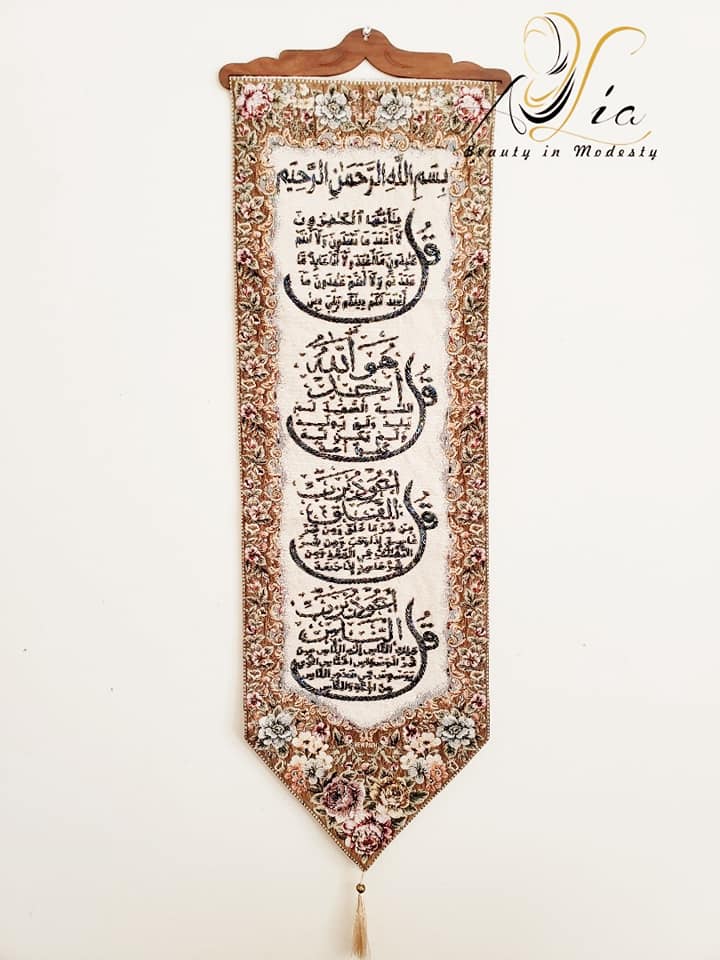 Lia
Beauty in Modesty
بِسْمِ اللَّهِ الرَّحْمَنِ الرَّحِيمِ
قُلْ يَٰأَيُّهَا الْكَٰفِرُونَ
لَا أَعْبُدُ مَا تَعْبُدُونَ وَلَا أَنتُمْ
عَٰبِدُونَ مَا أَعْبُدُ وَلَا أَنَا عَابِدٌ مَّا
عَبَدتُّمْ وَلَا أَنتُمْ عَٰبِدُونَ مَا
أَعْبُدُ لَكُمْ دِينُكُمْ وَلِيَ دِينِ
قُلْ هُوَ اللَّهُ
أَحَدٌ
اللَّهُ الصَّمَدُ لَمْ
يَلِدْ وَلَمْ يُولَدْ
وَلَمْ يَكُن لَّهُ
قُلْ أَعُوذُ بِرَبِّ
الْفَلَقِ
مِن شَرِّ مَا خَلَقَ وَمِن شَرِّ
غَاسِقٍ إِذَا وَقَبَ وَمِن شَرِّ
النَّفَّٰثَٰتِ فِي الْعُقَدِ وَمِن
شَرِّ حَاسِدٍ إِذَا حَسَدَ
قُلْ أَعُوذُ بِرَبِّ
النَّاسِ
مَلِكِ النَّاسِ إِلَٰهِ النَّاسِ مِن
شَرِّ الْوَسْوَاسِ الْخَنَّاسِ الَّذِي
يُوَسْوِسُ فِي صُدُورِ النَّاسِ
مِنَ الْجِنَّةِ وَالنَّاسِ